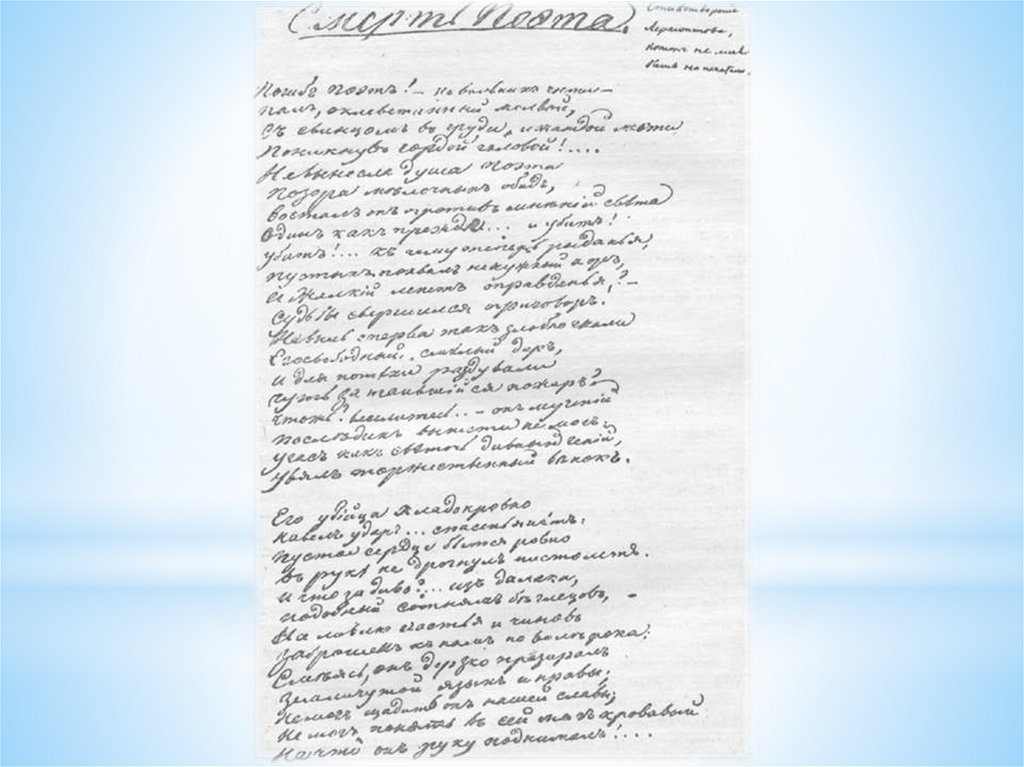 Смерть Поэта.
Стихотворенiе
Лермонтова,
которое не
было напечатано.
Погибъ Поэтъ! — невольникъ чести —
палъ, оклеветанный молвой,
съ свинцомъ въ груди, и жаждой мести
Поникнувъ гордой головой!....
Невынесла душа Поэта
Позора мѣлочныхъ обидъ,
возсталъ онъ противъ мнѣнiй свѣта
Одинъ какъ прежде... и убитъ!
убитъ!... къ чему теперь рыданья,
пустыхъ похвалъ ненужный хоръ,
и жалкiй лепетъ оправданья,? —
Судьбы свершился приговоръ.
Невыль сперва такъ злобно гнали
Его свободный, смѣлый даръ,
и для потѣхи раздували
чуть затаившiйся пожаръ?
чтожъ? веселитесь.. — онъ мученiй
последнихъ вынести не могъ;
угасъ какъ свѣточь дивный генiй,
увялъ торжественный вѣнокъ.
Его убiйца хладнокровно
навелъ ударъ... спасенья нѣтъ:
пустое сердце бьется ровно
въ рукѣ не дрогнулъ пистолетъ.
и что за диво?... изъ далека,
подобный сотнямъ бѣглецовъ, —
На ловлю счастья и чиновъ
заброшенъ къ намъ по волѣ рока;
Смѣясь, онъ дерзко презиралъ
Земли чужой языкъ и нравы;
не могъ щадить онъ нашей славы;
не могъ понять въ сей мигъ кровавой
На что онъ руку поднималъ!....